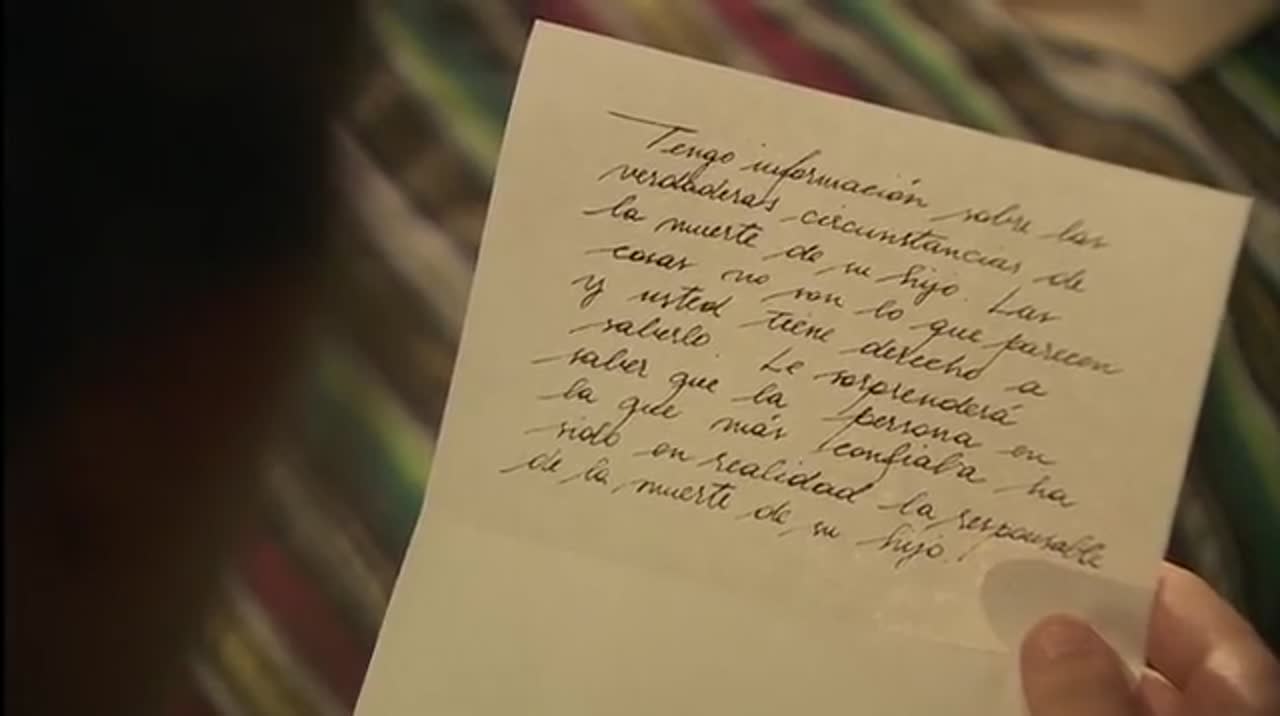 Tengo información sobre las
verdaderas circunstancias de
la muerte de su hijo. Las
cosas no son lo que parecen
y usted tiene derecho a
saberlo. Le sorprenderá
saber que la persona en
la que más confiaba ha
sido en realidad la responsable
de la muerte de su hijo.